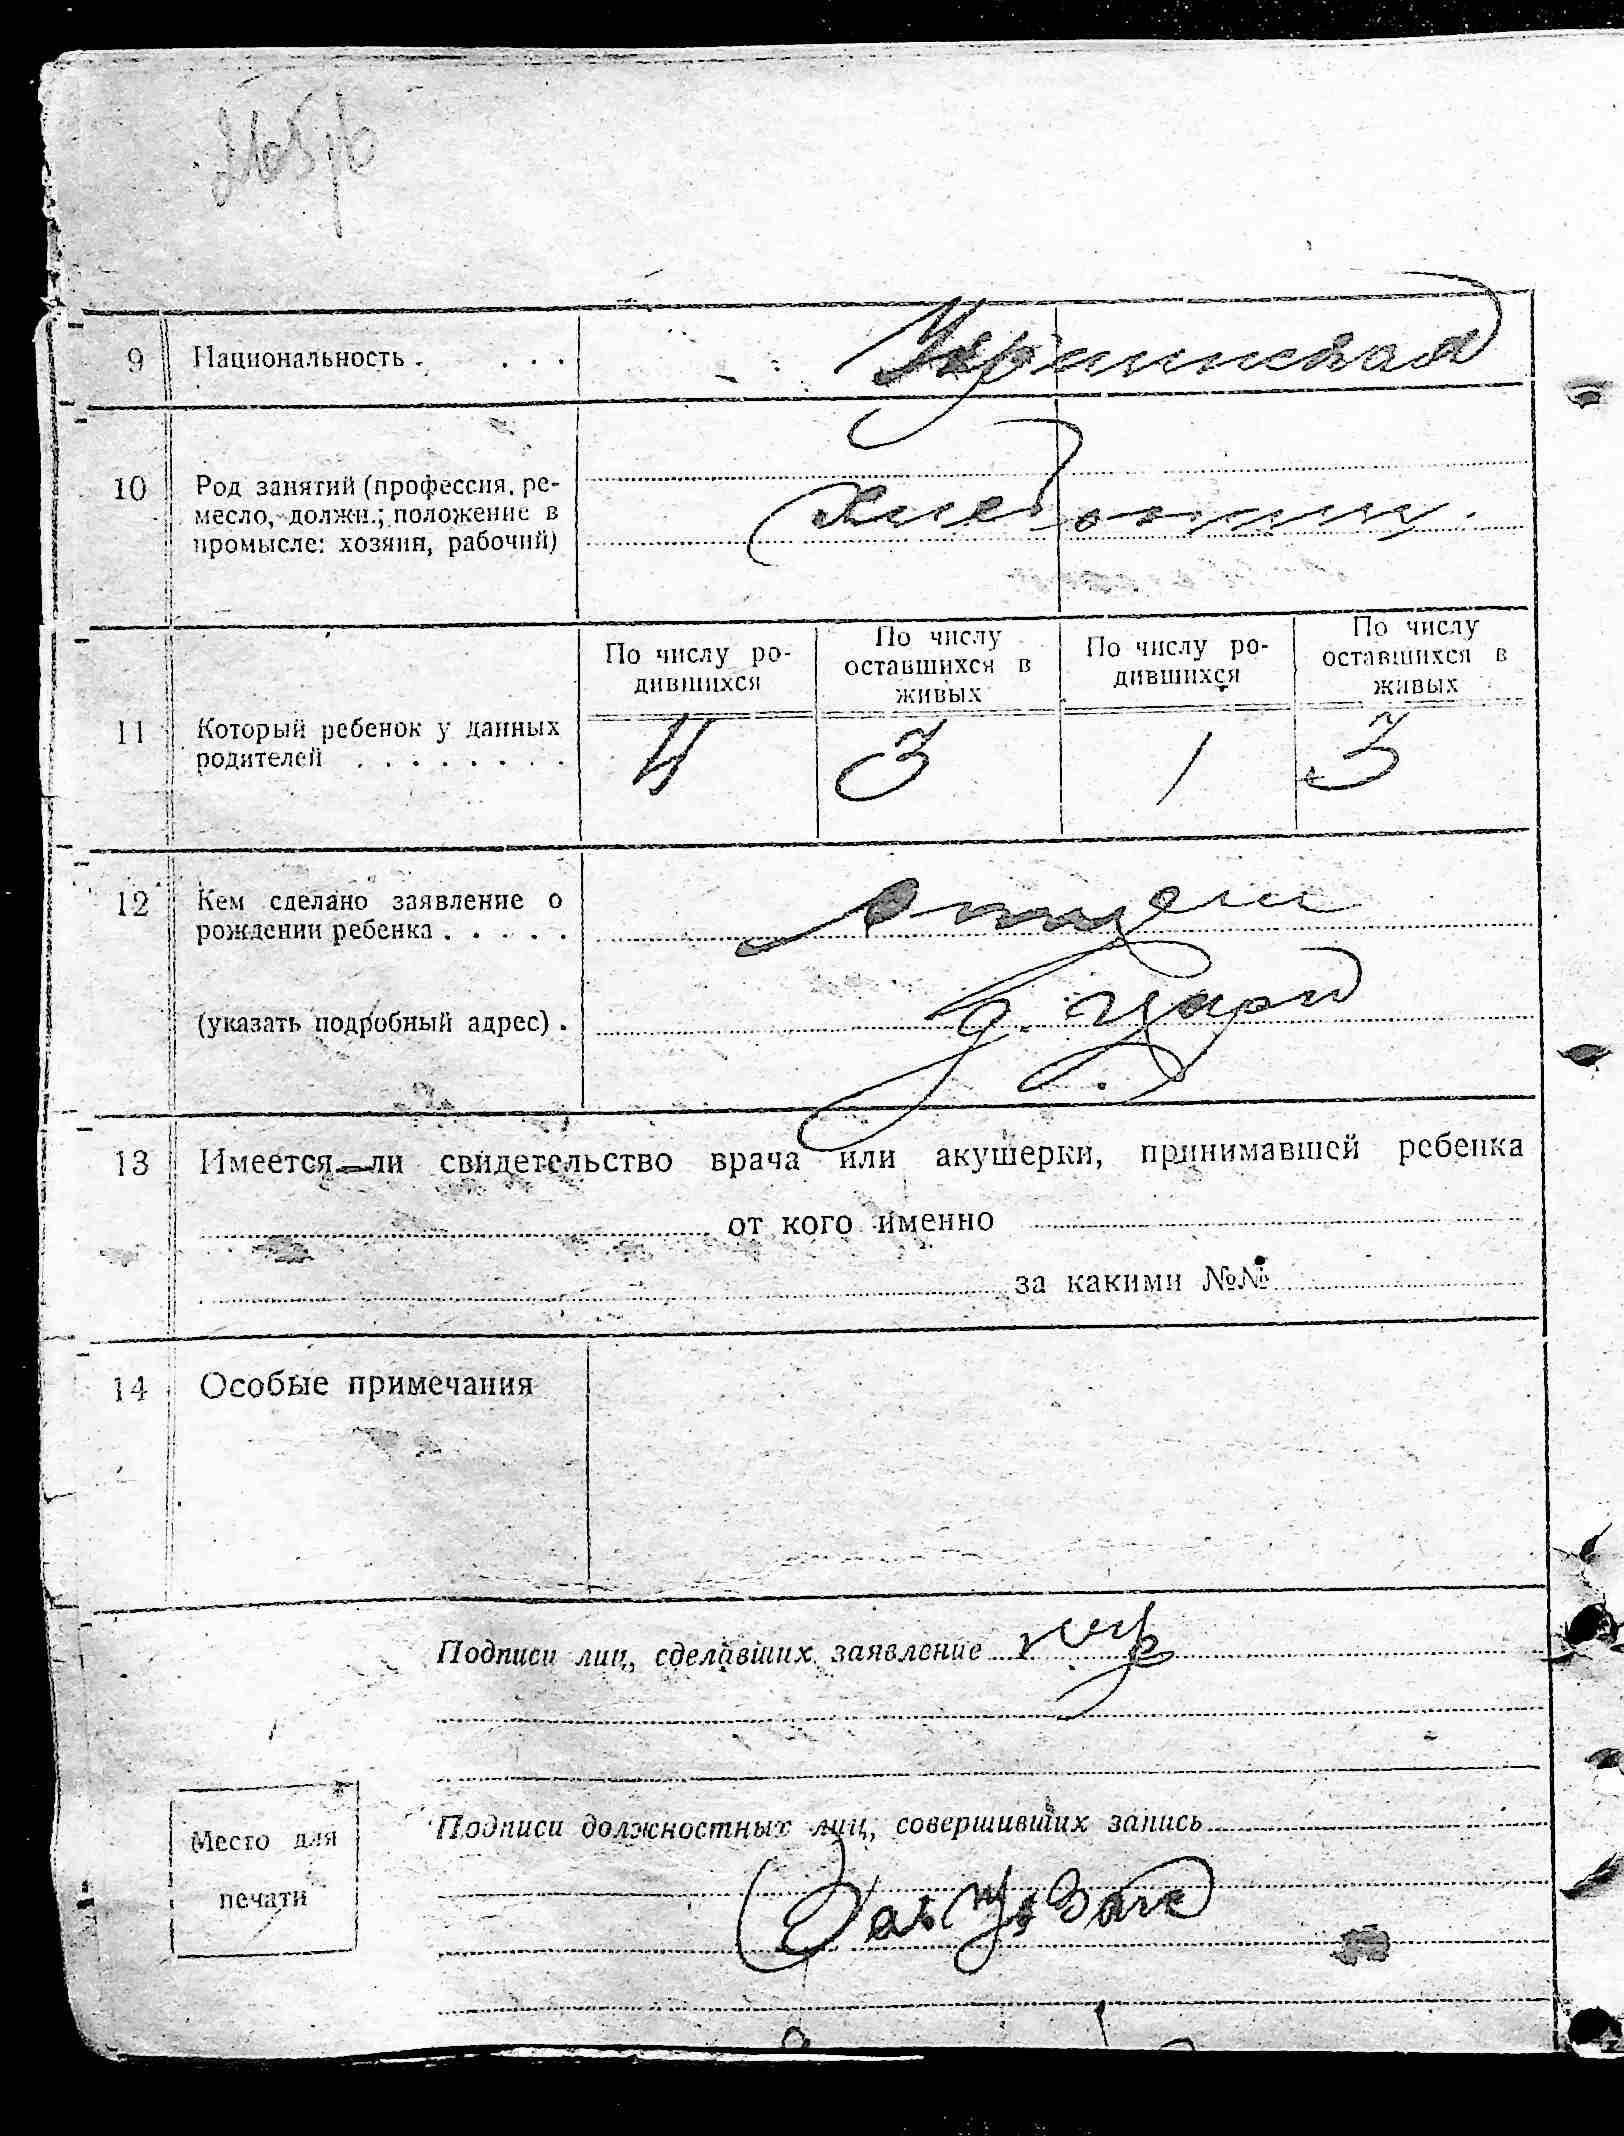 9 Национальность . . . . Украинская
10 Род занятий (профессия, ре-
месло, должн.; положение в
промысле: хозяин, рабочий)
Хлебопашц.
11 Который ребенок у данных
родителей . . . . . . . .
По числу ро-
дившихся
По числу
оставшихся в
живых
По числу ро-
дившихся
По числу
оставшихся в
живых
4 3 1 3
12 Кем сделано заявление о
рождении ребенка . . . . .
Отцем
(указать подробный адрес) .
13 Имеется—ли свидетельство врача или акушерки, принимавшей ребенка
от кого именно
за какими №№
14 Особые примечания
Подписи лиц, сделавших заявление
Место для
печати
Подписи должностных лиц, совершивших запись